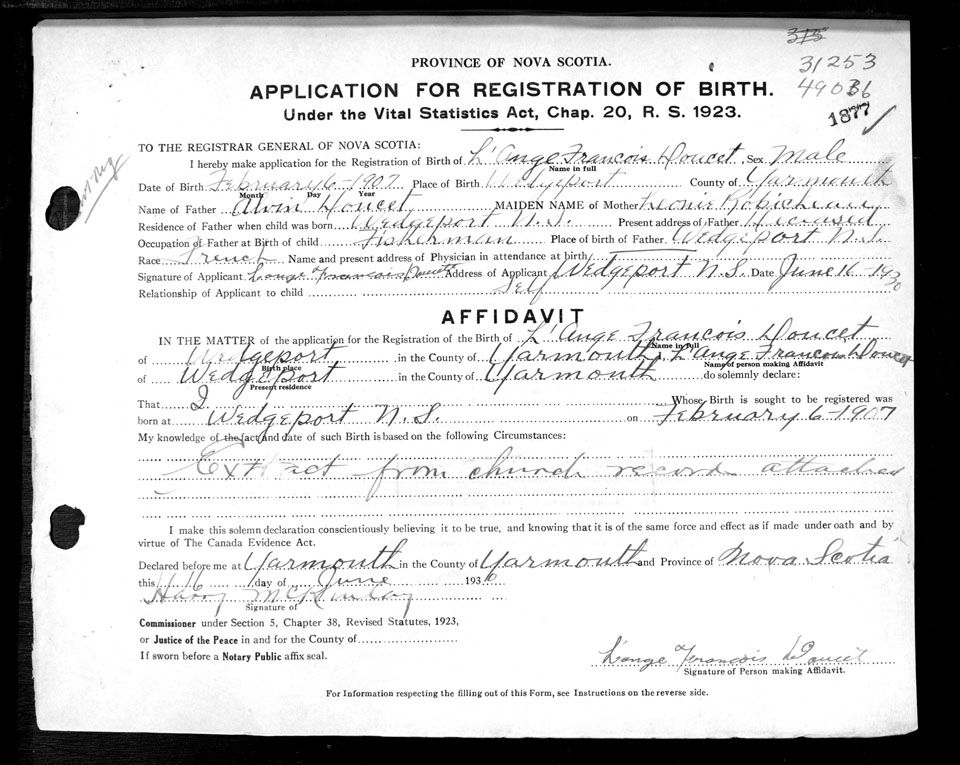 315
31253
49036
1877
PROVINCE OF NOVA SCOTIA.
APPLICATION FOR REGISTRATION OF BIRTH.
Under the Vital Statistics Act, Chap. 20, R. S. 1923.
TO THE REGISTRAR GENERAL OF NOVA SCOTIA:
I hereby make application for the Registration of Birth of L'Ange Francois Doucet, Sex Male
Name in full
Date of Birth February 6-1907 Place of Birth Wedgeport County of Yarmouth
Month Day Year
Name of Father Alvin Doucet MAIDEN NAME of Mother Leonie Robicheau
Residence of Father when child was born Wedgeport N.S. Present address of Father Deceased
Occupation of Father at Birth of child Fisherman Place of birth of Father Wedgeport N.S.
Race French Name and present address of Physician in attendance at birth
Signature of Applicant L'ange Francois Doucet Address of Applicant Wedgeport N.S. Date June 16-1930
Relationship of Applicant to child Self
AFFIDAVIT
IN THE MATTER of the application for the Registration of the Birth of L'Ange Francois Doucet
Name in full
of Wedgeport in the County of Yarmouth I, L'Ange Francois Doucet
Birth place Name of person making Affidavit
of Wedgeport in the County of Yarmouth do solemnly declare:
Present residence
That I Whose Birth is sought to be registered was
born at Wedgeport N.S. on February 6-1907
My knowledge of the fact and date of such Birth is based on the following Circumstances:
Extract from church record attached
I make this solemn declaration conscientiously believing it to be true, and knowing that it is of the same force and effect as if made under oath and by
virtue of The Canada Evidence Act.
Declared before me at Yarmouth in the County of Yarmouth and Province of Nova Scotia
this 16 day of June 1930
Harry McKinlay
Signature of
Commissioner under Section 5, Chapter 38, Revised Statutes, 1923,
or Justice of the Peace in and for the County of
If sworn before a Notary Public affix seal.
L'ange Francois Doucet
Signature of Person making Affidavit.
For Information respecting the filling out of this Form, see Instructions on the reverse side.